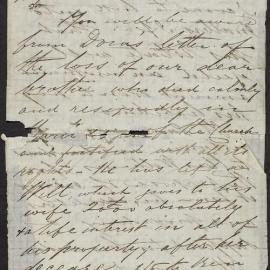 You will be aware
from Doras letter of
the loss of our dear
brother who died calmly
and resignedly in
of the Church
and fortified with its
rights. He has left a
Will which gives to his
wife absolutely
& a life interest in all of
his property & after her
decease